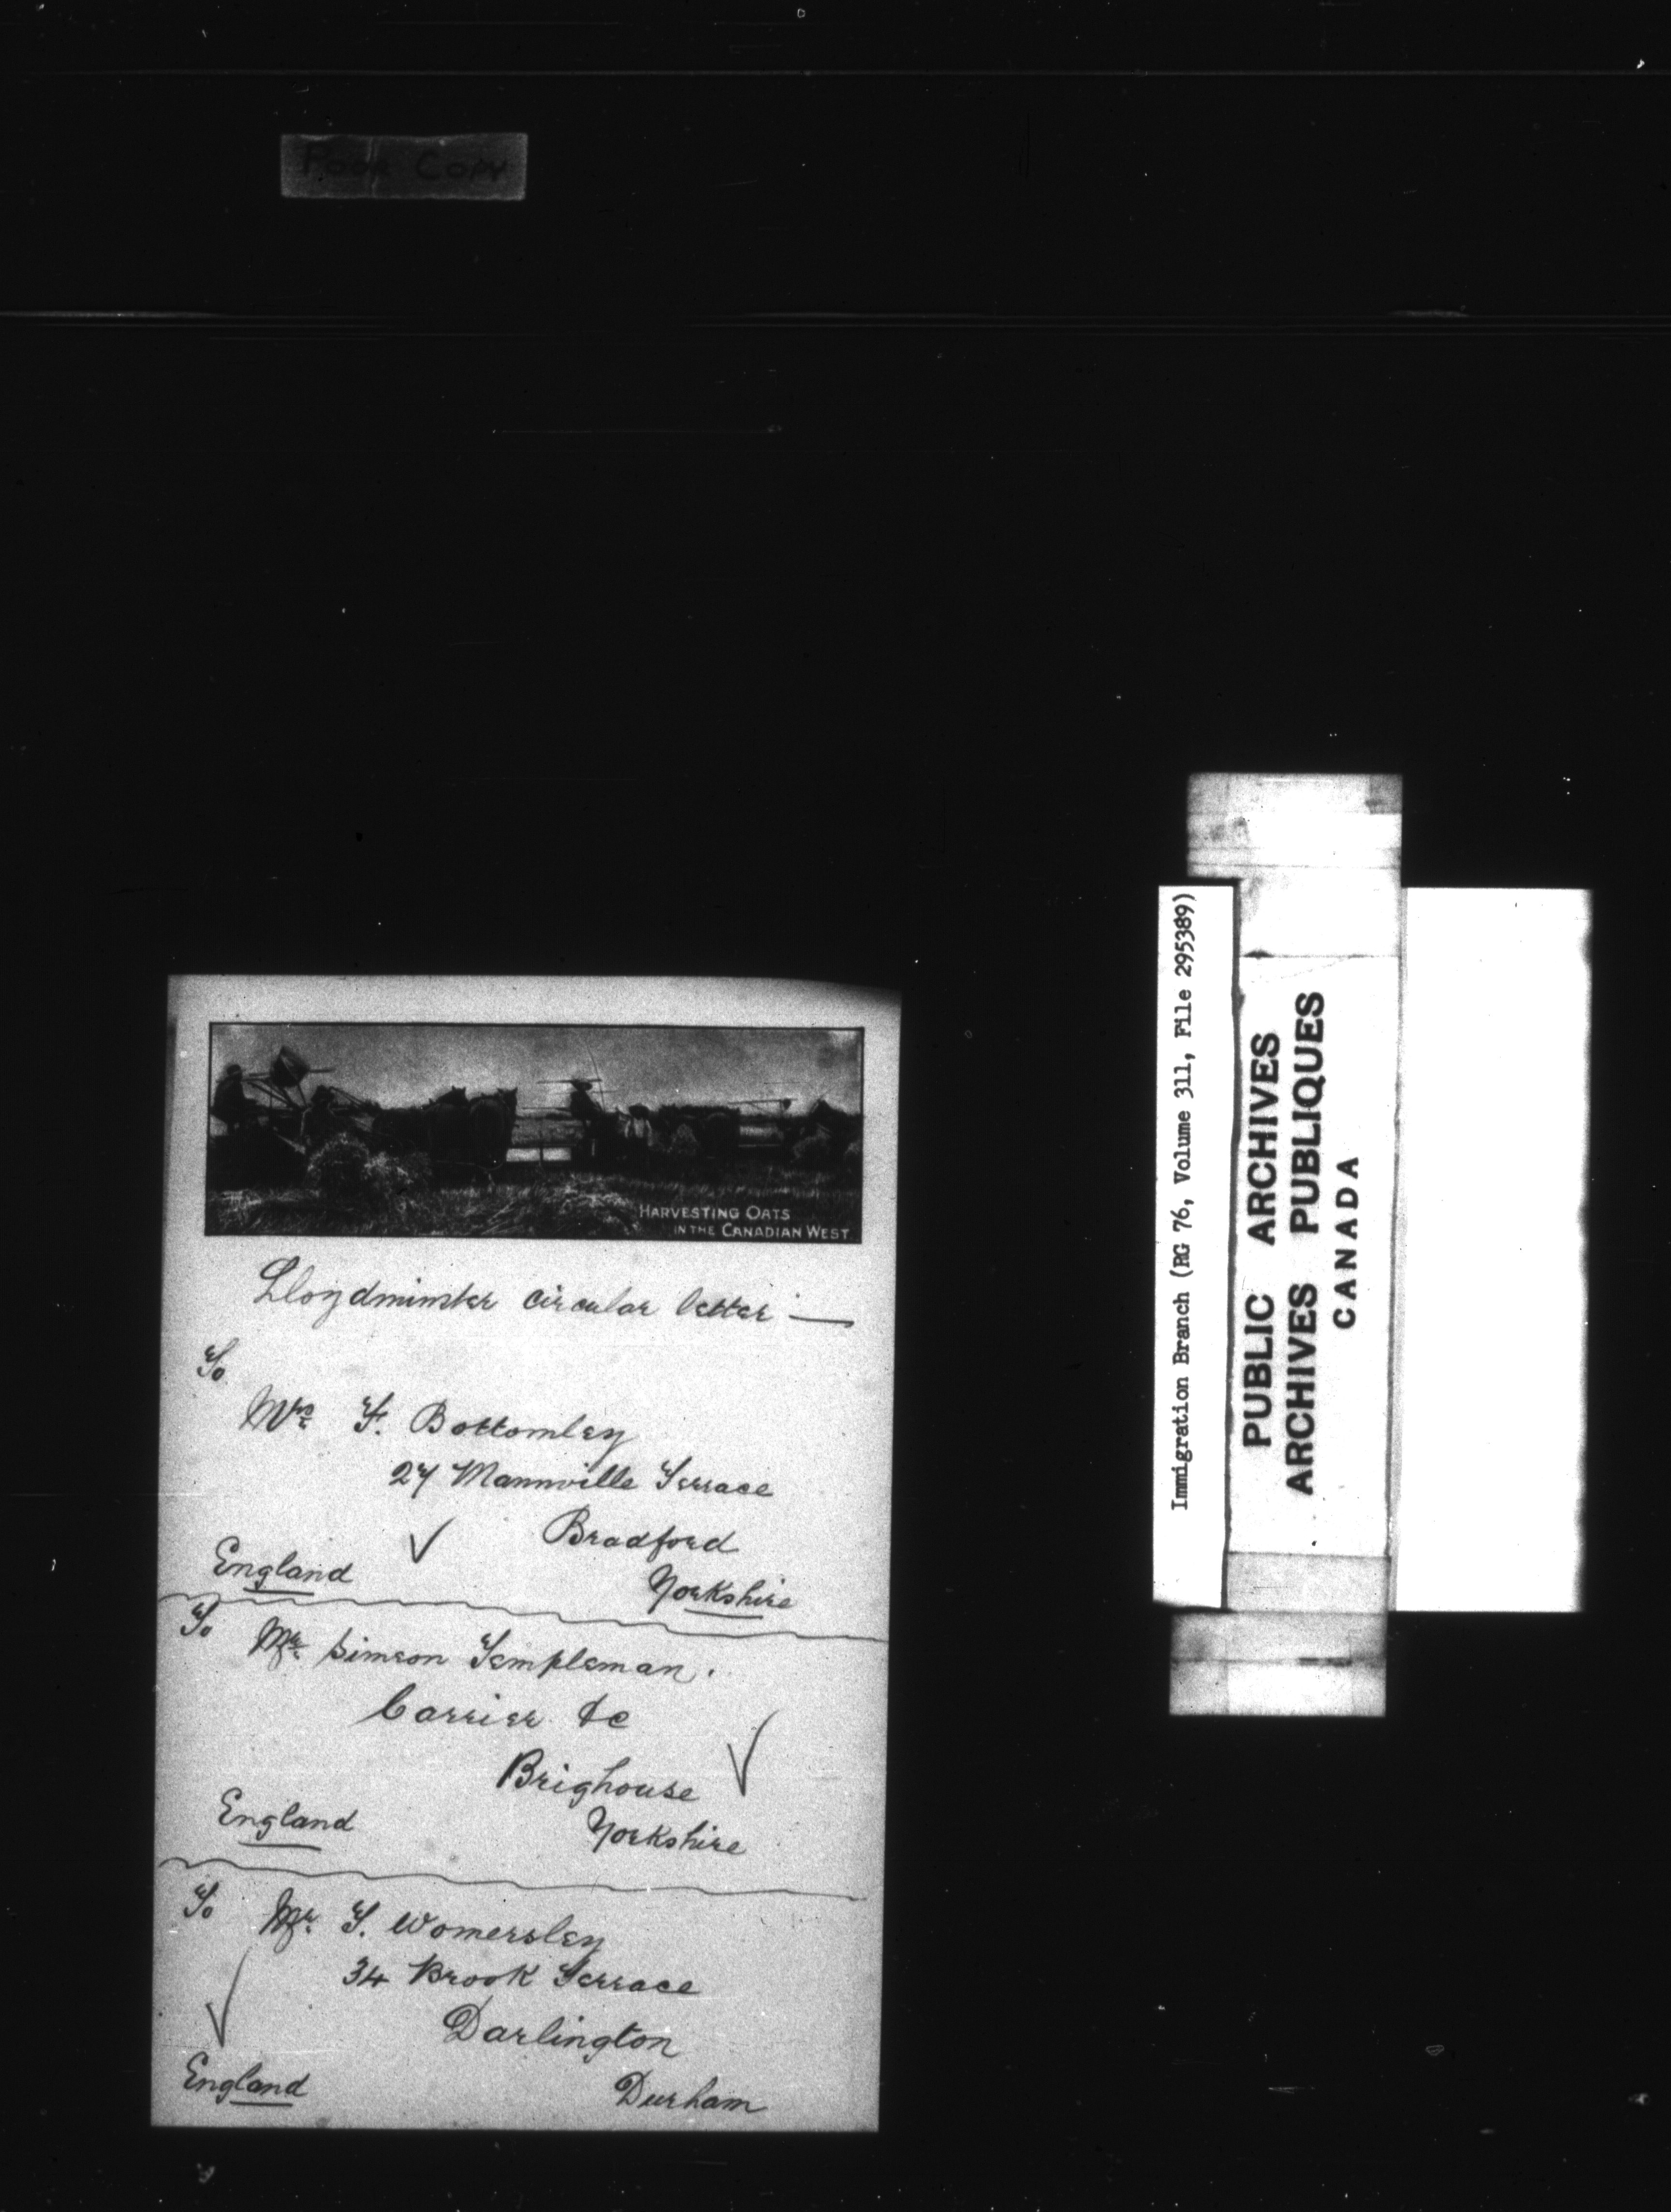 Poor Copy
HARVESTING OATS
IN THE CANADIAN WEST
Lloydminster circular letter —
To
Mrs F. Bottomley
27 Mannville Terrace
Bradford
England
Yorkshire
To Mr Simeon Templeman.
Carrier &c
Brighouse
England
Yorkshire
To Mr T. Womersley
34 Brook Terrace
Darlington
England
Durham
Immigration Branch (RG 76, Volume 311, File 295389)
PUBLIC ARCHIVES
ARCHIVES PUBLIQUES
CANADA